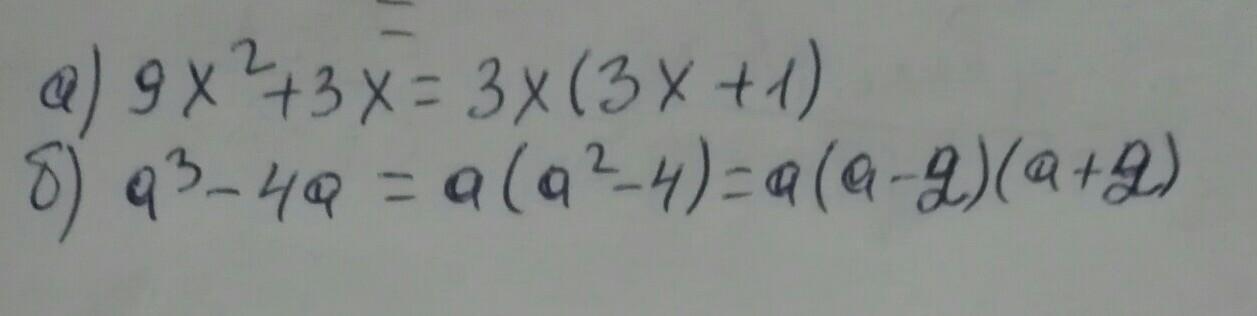 а) 9x²+3x = 3x(3x+1)
б) a³-4a = a(a²-4)=a(a-2)(a+2)